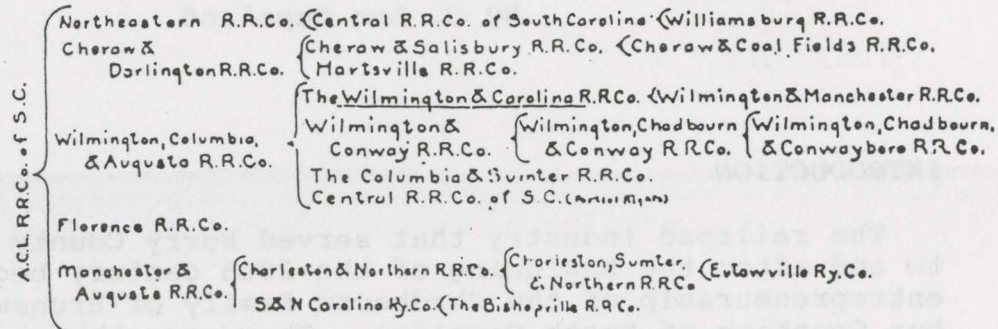 A.C.L. R.R.Co. of S.C.
Northeastern R.R.Co. Central R.R.Co. of South Carolina Williamsburg R.R.Co.
Cheraw &
Darlington R.R.Co.
Cheraw & Salisbury R.R.Co. Cheraw & Coal Fields R.R.Co.
Hartsville R.R.Co.
Wilmington, Columbia,
& Augusta R.R.Co.
The Wilmington & Carolina R.R.Co. Wilmington & Manchester R.R.Co.
Wilmington &
Conway R.R.Co.
Wilmington, Chadbourn
& Conway R.R.Co.
Wilmington, Chadbourn,
& Conwayboro R.R.Co.
The Columbia & Sumter R.R.Co.
Central R.R.Co. of S.C.
Florence R.R.Co.
Manchester &
Augusta R.R.Co.
Charleston & Northern R.R.Co.
Charleston, Sumter
& Northern R.R.Co.
Eutawville Ry.Co.
S. & N. Carolina Ry.Co. The Bishopville R.R.Co.
INTRODUCTION
The railroad industry that served Horry County